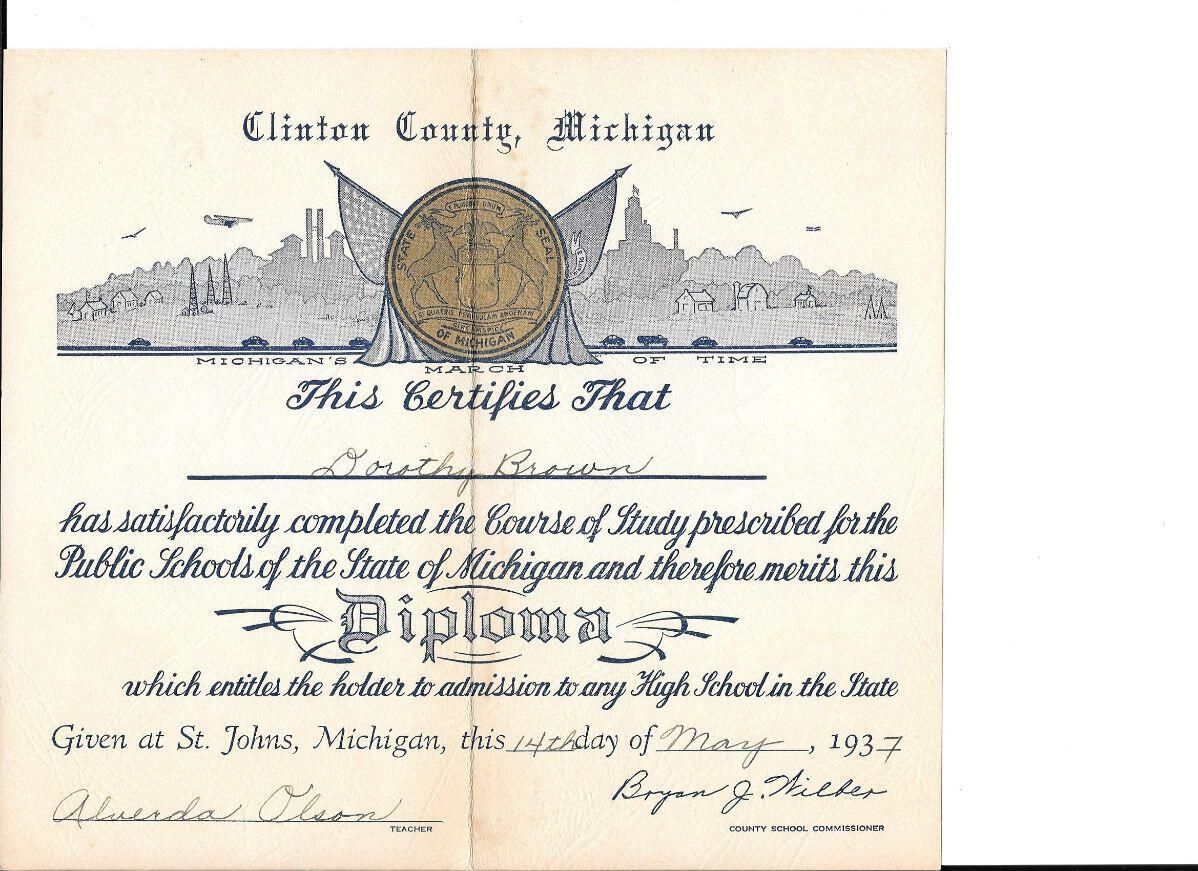 Clinton County, Michigan
E PLURIBUS UNUM
STATE SEAL
SI QUAERIS PENINSULAM AMOENAM
CIRCUMSPICE
OF MICHIGAN
MICHIGAN'S MARCH OF TIME
This Certifies That
Dorothy Brown
has satisfactorily completed the Course of Study prescribed for the
Public Schools of the State of Michigan and therefore merits this
Diploma
which entitles the holder to admission to any High School in the State
Given at St. Johns, Michigan, this 14th day of May, 1937
Alverda Olson
Bryan J. Wilber
TEACHER
COUNTY SCHOOL COMMISSIONER